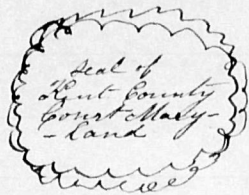 Seal of
Kent County
Court Mary-
-Land